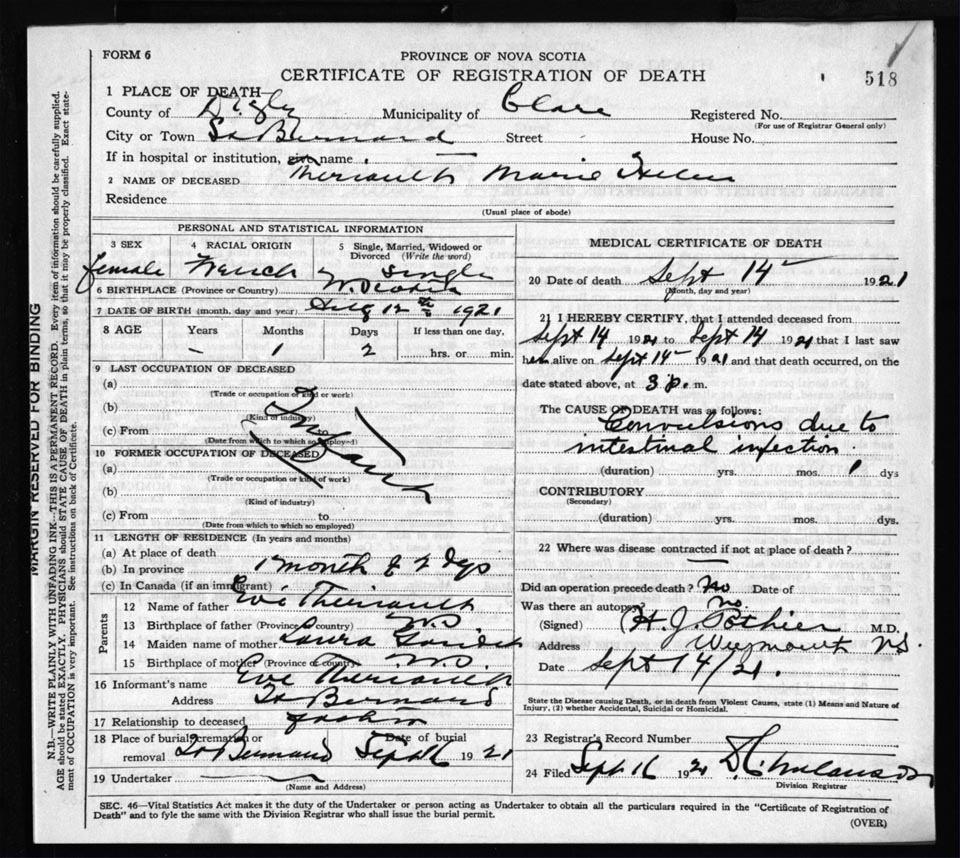 FORM 6
PROVINCE OF NOVA SCOTIA
CERTIFICATE OF REGISTRATION OF DEATH
518
1 PLACE OF DEATH—
County of Digby Municipality of Clare Registered No.
(For use of Registrar General only)
City or Town St Bernard Street House No.
If in hospital or institution, give name
2 NAME OF DECEASED Theriault Marie Helen
Residence
(Usual place of abode)
PERSONAL AND STATISTICAL INFORMATION
3 SEX 4 RACIAL ORIGIN 5 Single, Married, Widowed or Divorced (Write the word)
female French Single
6 BIRTHPLACE (Province or Country) N. Scotia
7 DATE OF BIRTH (month, day and year) Aug 12th 1921
8 AGE Years Months Days If less than one day,
— 1 2 hrs. or min.
9 LAST OCCUPATION OF DECEASED
(a)
(Trade or occupation or kind of work)
(b)
(Kind of industry)
(c) From to
(Date from which to which so employed)
Infant
10 FORMER OCCUPATION OF DECEASED
(a)
(Trade or occupation or kind of work)
(b)
(Kind of industry)
(c) From to
(Date from which to which so employed)
11 LENGTH OF RESIDENCE (In years and months)
(a) At place of death
(b) In province 1 month & 2 dys
(c) In Canada (if an immigrant)
Parents
12 Name of father Theriault
13 Birthplace of father (Province or country) N.S.
14 Maiden name of mother Laura
15 Birthplace of mother (Province or country) N.S.
16 Informant's name Theriault
Address St Bernard
17 Relationship to deceased father
18 Place of burial, cremation or removal St Bernard Date of burial Sept 16 1921
19 Undertaker
(Name and Address)
MEDICAL CERTIFICATE OF DEATH
20 Date of death Sept 14 1921
(Month, day and year)
21 I HEREBY CERTIFY, that I attended deceased from
Sept 14 1921 to Sept 14 1921 that I last saw
h alive on Sept 14 1921 and that death occurred, on the
date stated above, at 3 p. m.
The CAUSE OF DEATH was as follows:
Convulsions due to
intestinal infection
(duration) yrs. mos. 1 dys
CONTRIBUTORY
(Secondary)
(duration) yrs. mos. dys.
22 Where was disease contracted if not at place of death?
Did an operation precede death? No Date of
Was there an autopsy no
(Signed) H. J. Pothier M.D.
Address Weymouth NS.
Date Sept 14/21.
State the Disease causing Death, or in death from Violent Causes, state (1) Means and Nature of
Injury, (2) whether Accidental, Suicidal or Homicidal.
23 Registrar's Record Number
24 Filed Sept 16 1921
Division Registrar
SEC. 46—Vital Statistics Act makes it the duty of the Undertaker or person acting as Undertaker to obtain all the particulars required in the "Certificate of Registration of
Death" and to fyle the same with the Division Registrar who shall issue the burial permit.
(OVER)
MARGIN RESERVED FOR BINDING
N.B.—WRITE PLAINLY WITH UNFADING INK—THIS IS A PERMANENT RECORD. Every item of information should be carefully supplied.
AGE should be stated EXACTLY. PHYSICIANS should STATE CAUSE OF DEATH in plain terms, so that it may be properly classified. Exact state-
ment of OCCUPATION is very important. See instructions on back of Certificate.